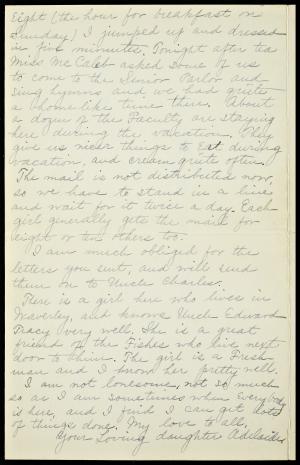 Eight (the hour for breakfast on
Sunday) I jumped up and dressed
in five minutes. Tonight after tea
Miss McCaleb asked some of us
to come to the Senior Parlor and
sing hymns and we had quite
a home-like time there. About
a dozen of the Faculty are staying
here during the vacation. They
give us nicer things to Eat during
vacation, and cream quite often.
The mail is not distributed now,
so we have to stand in a line
and wait for it twice a day. Each
girl generally gets the mail for
eight or ten others too.
I am much obliged for the
letters you sent, and will send
them on to Uncle Charles.
There is a girl here who lives in
Waverley, and knows Uncle Edward
Tracy very well. She is a great
friend of the Fishes who live next
door to him. The girl is a Fresh-
man and I know her pretty well.
I am not lonesome, not so much
so as I am sometimes when Everybody
is here, and I find I can get lots
of things done. My love to all,
Your loving daughter Adelaide